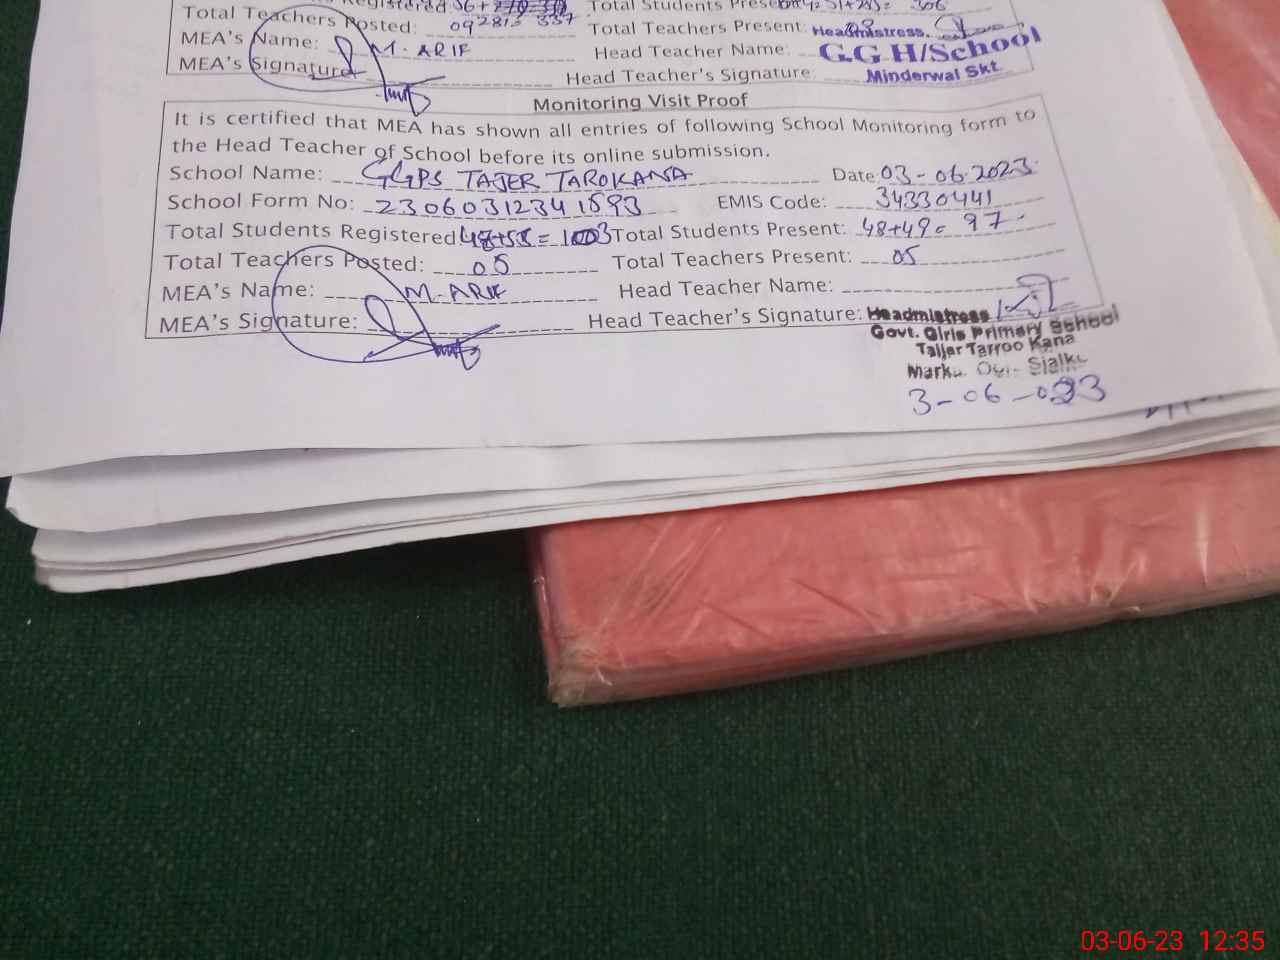 Registered 36+
Total Students Present: 306
Total Teachers Posted: 09 281= 337
Total Teachers Present: 09
MEA's Name: M. ARIF
Headmistress.
Head Teacher Name:
G.G.H/School
MEA's Signature
Head Teacher's Signature:
Minderwal Skt.
Monitoring Visit Proof
It is certified that MEA has shown all entries of following School Monitoring form to
the Head Teacher of School before its online submission.
School Name: GGPS TAJER TAROKANA Date: 03-06-2023
School Form No: 23060312341593 EMIS Code: 34330441
Total Students Registered Total Students Present: 48+49= 97
Total Teachers Posted: 05 Total Teachers Present: 05
MEA's Name: M-ARIF Head Teacher Name:
MEA's Signature: Head Teacher's Signature: Headmistress
Govt. Girls Primary School
Taljer Tarroo Kana
Marka. Sialk
3-06-023
03-06-23 12:35